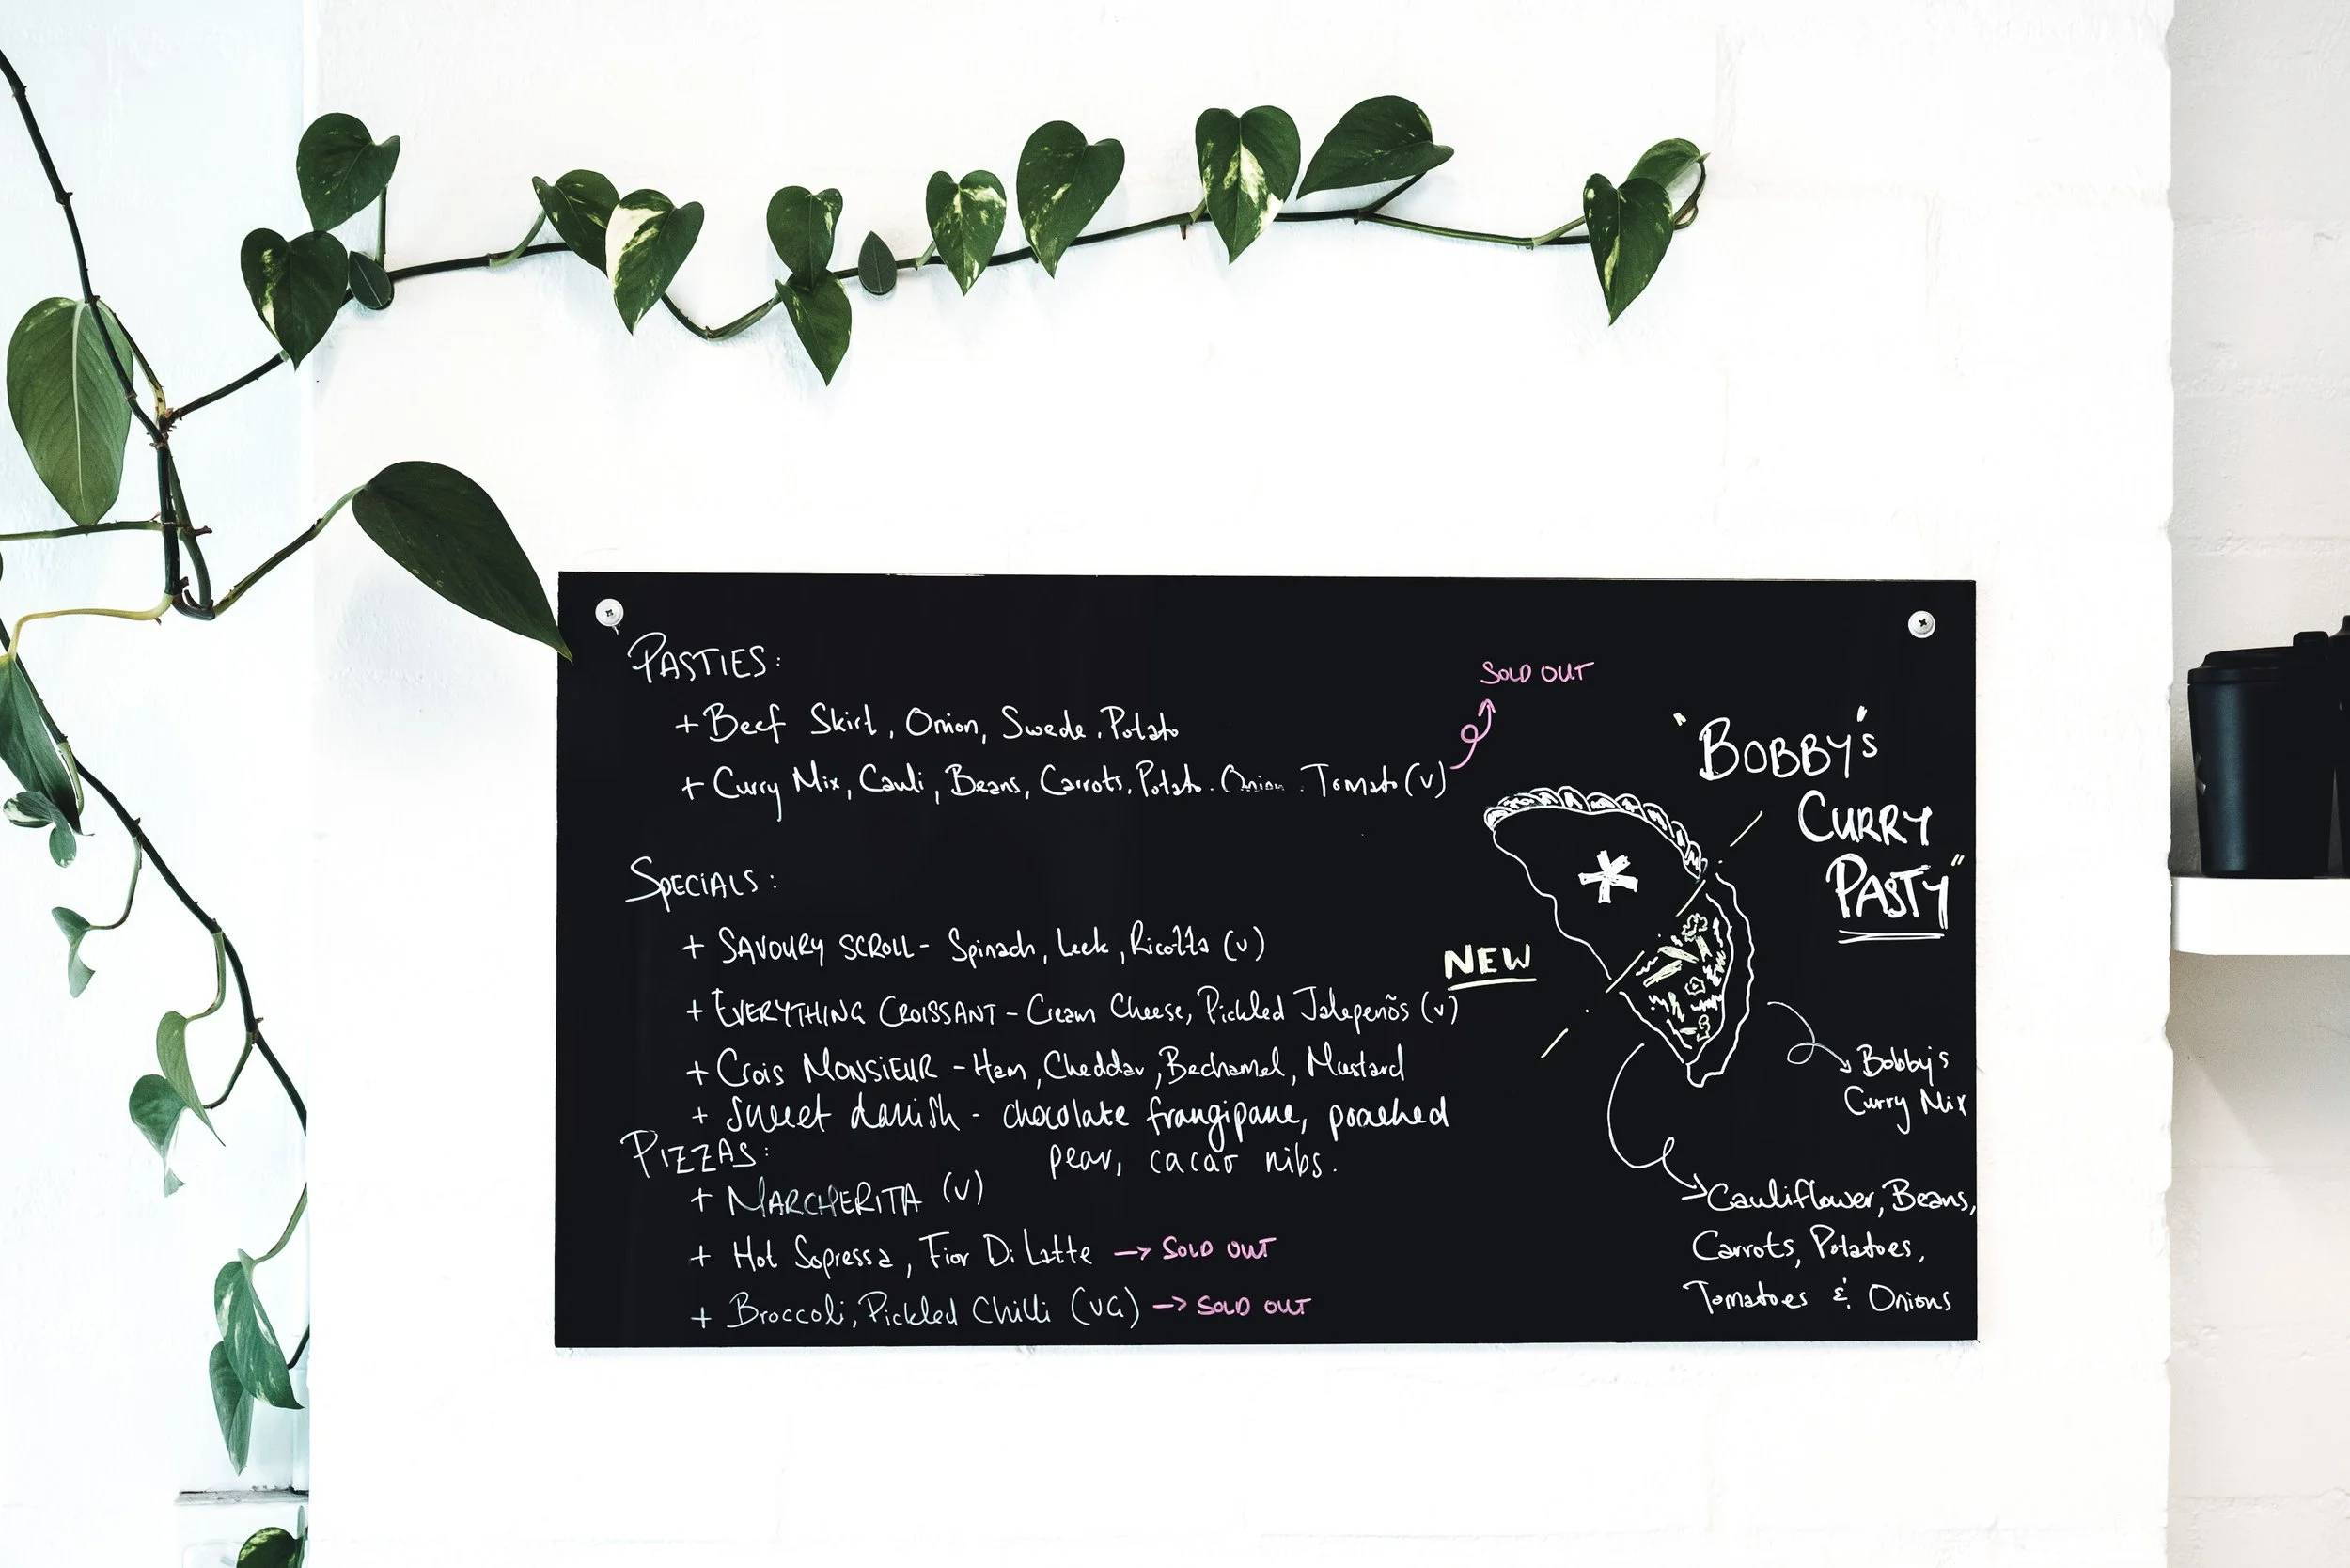 PASTIES:
+ Beef Skirt, Onion, Swede, Potato
+ Curry Mix, Cauli, Beans, Carrots, Potato. Onion. Tomato (v)
SOLD OUT
SPECIALS:
+ SAVOURY SCROLL - Spinach, Leek, Ricotta (v)
+ EVERYTHING CROISSANT - Cream Cheese, Pickled Jalepenõs (v)
+ Crois MONSIEUR - Ham, Cheddar, Bechamel, Mustard
+ Sweet danish - chocolate frangipane, poached
pear, cacao nibs.
PIZZAS:
+ MARGHERITA (v)
+ Hot Sopressa, Fior Di Latte → SOLD OUT
+ Broccoli, Pickled Chilli (VG) → SOLD OUT
"BOBBY'S"
CURRY
PASTY"
NEW
Bobby's
Curry Mix
Cauliflower, Beans,
Carrots, Potatoes,
Tomatoes & Onions